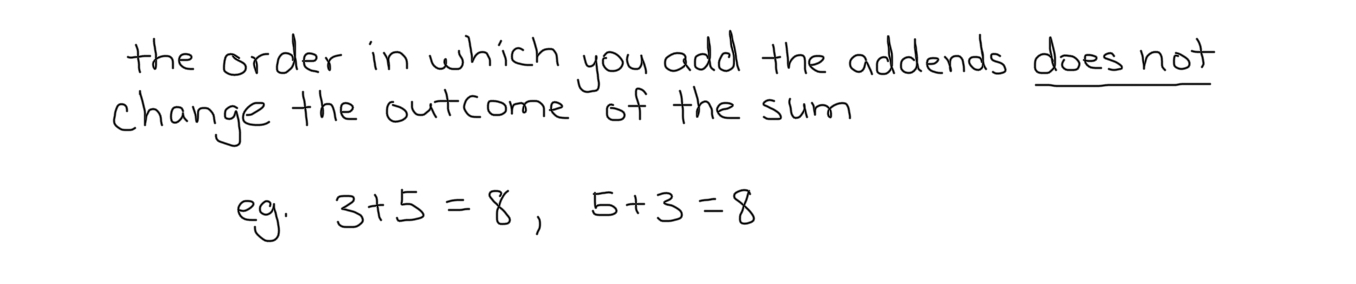 the order in which you add the addends does not
change the outcome of the sum
eg. 3+5 = 8, 5+3 = 8